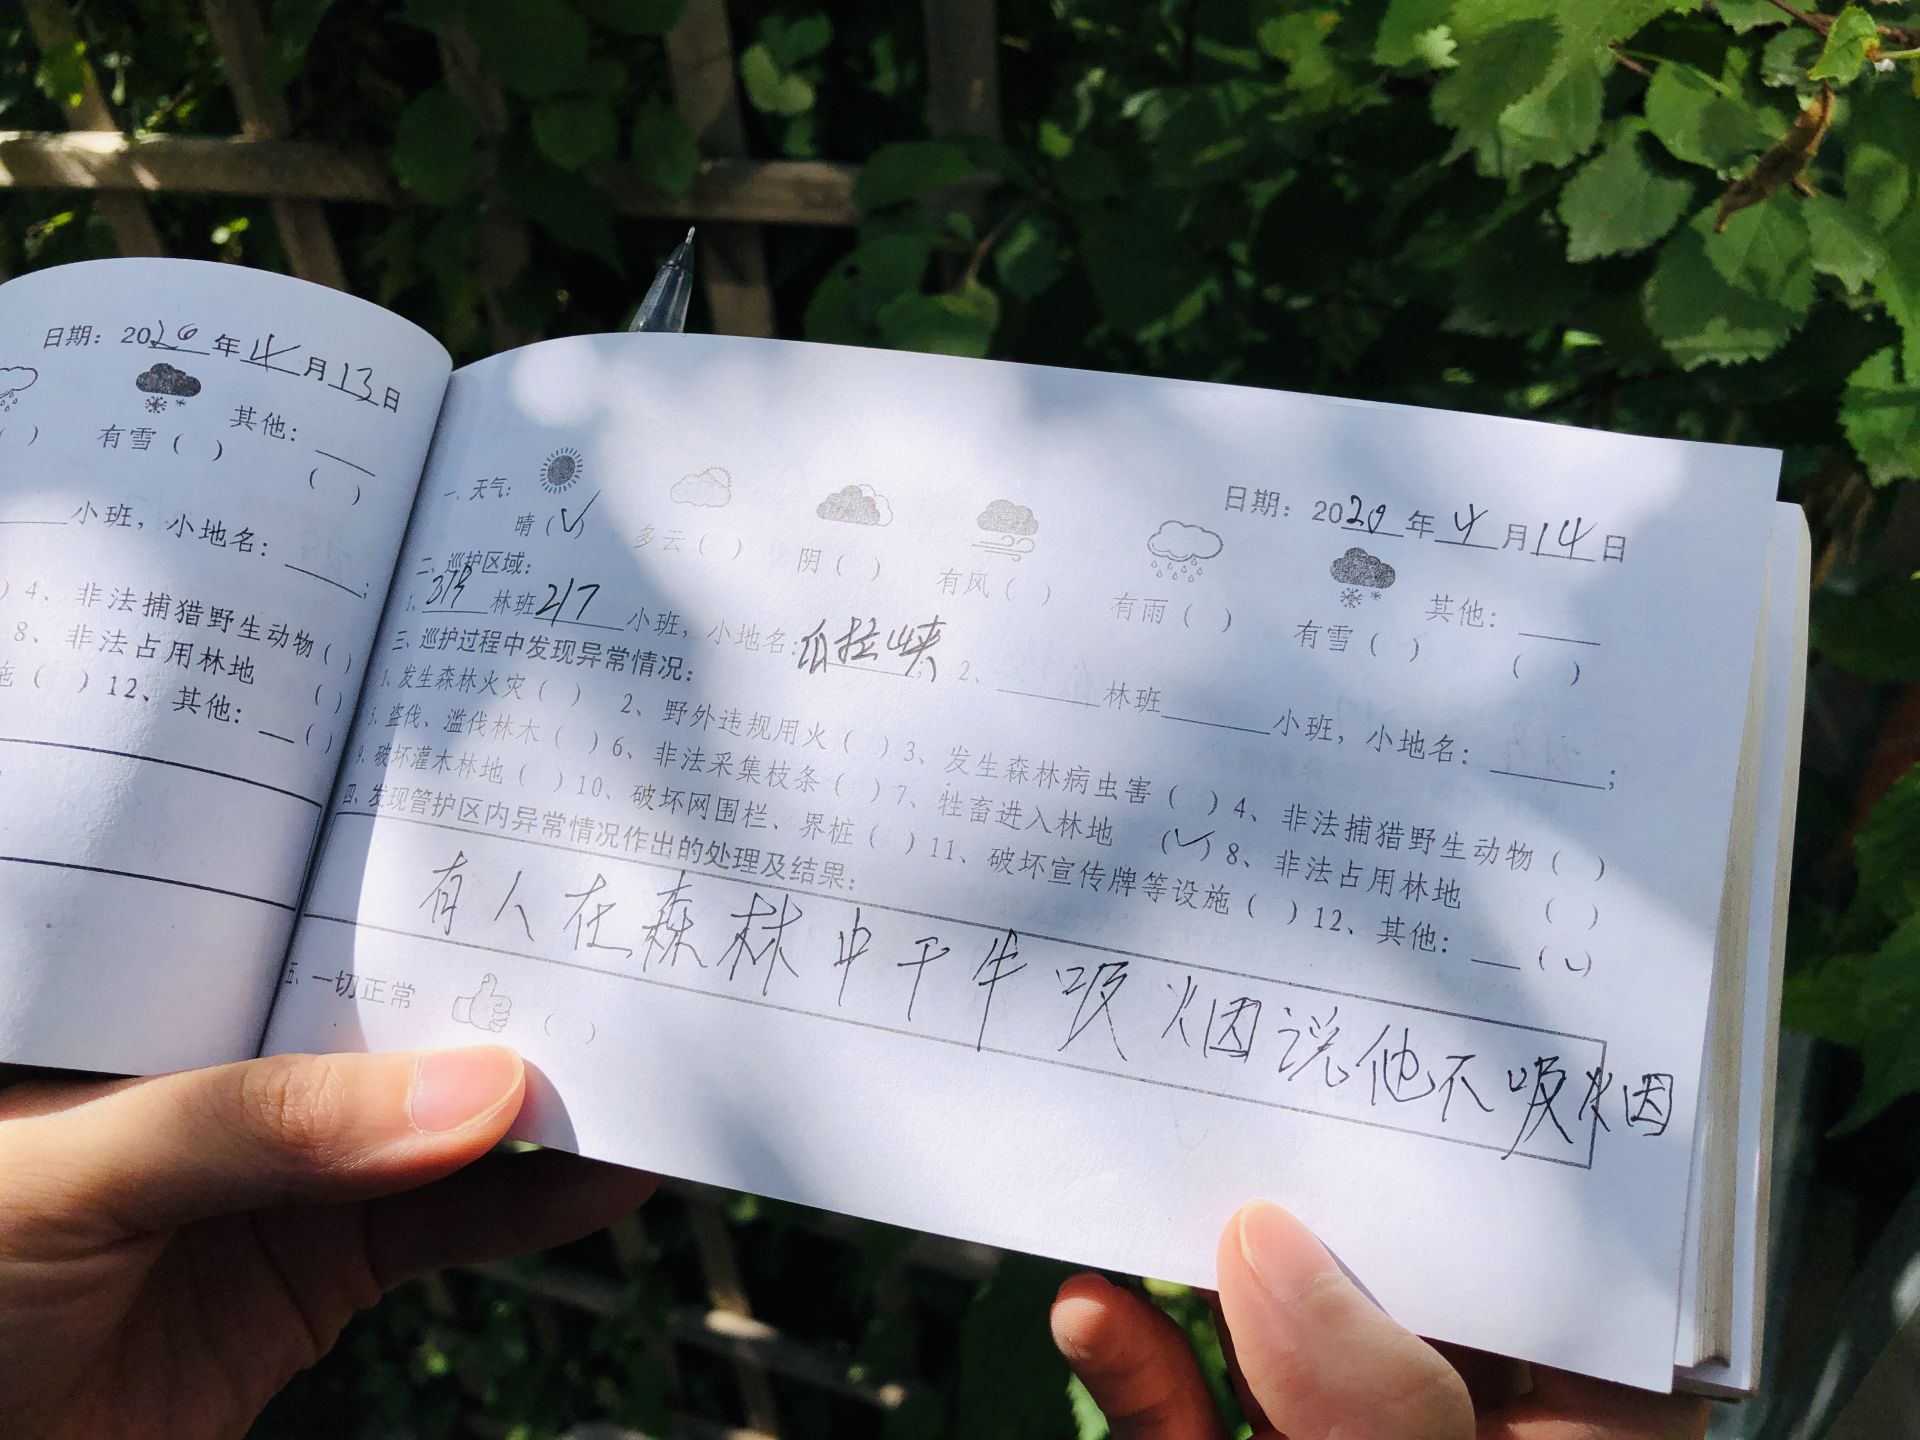 日期：2020年4月13日
有雪（ ） 其他：
（ ）
小班，小地名：；
）4、非法捕猎野生动物（ ）
8、非法占用林地（ ）
施（ ）12、其他：（ ）
日期：2020年4月14日
一、天气：
晴（√） 多云（ ） 阴（ ） 有风（ ） 有雨（ ） 有雪（ ） 其他：（ ）
二、巡护区域：
1、林班217小班，小地名：瓜拉峡；2、林班小班，小地名：；
三、巡护过程中发现异常情况：
1、发生森林火灾（ ） 2、野外违规用火（ ）3、发生森林病虫害（ ）4、非法捕猎野生动物（ ）
5、盗伐、滥伐林木（ ）6、非法采集枝条（ ）7、牲畜进入林地（√）8、非法占用林地（ ）
9、破坏灌木林地（ ）10、破坏网围栏、界桩（ ）11、破坏宣传牌等设施（ ）12、其他：（√）
四、发现管护区内异常情况作出的处理及结果：
有人在森林中干牛吸烟说他不吸烟
五、一切正常（ ）